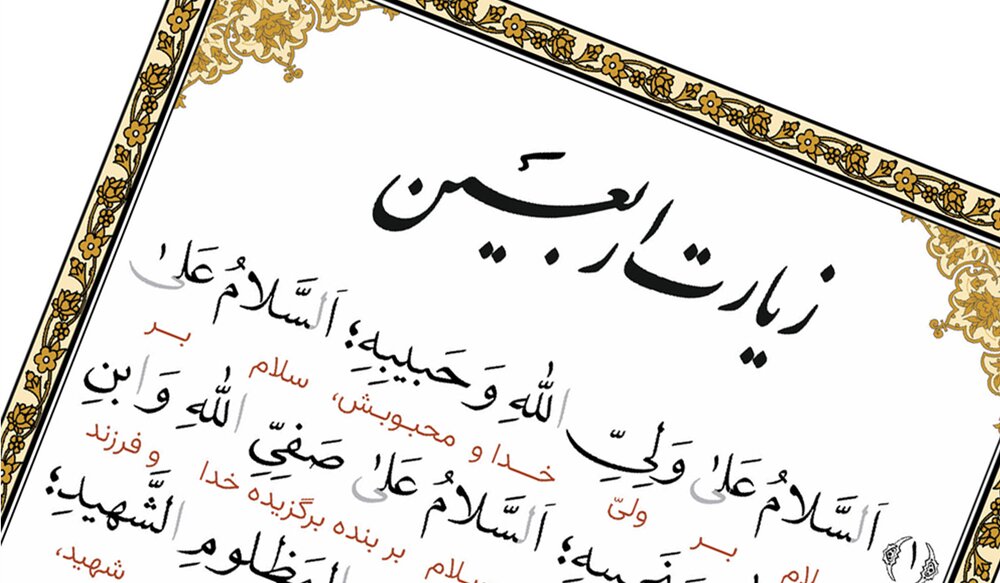 زیارت اربعین
۱ اَلسَّلامُ عَلىٰ وَلِيِّ اللهِ وَ حَبيبِهِ؛ اَلسَّلامُ عَلىٰ
سلام بر ولیّ خدا و محبوبش، سلام بر
اَلسَّلامُ عَلىٰ صَفِيِّ اللهِ وَ ابنِ
سلام بر بنده برگزیده خدا و فرزند
المَظلومِ الشَّهيدِ؛
شهید،